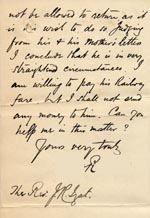 not be allowed to return as it
is his wish to do so judging
from his & his Mother's letters
I conclude that he is in very
straightened circumstances I
am willing to pay his Railway
fare but I shall not send
any money to him. Can you
help me in this matter?
Yours very truly
R
The Rev J R